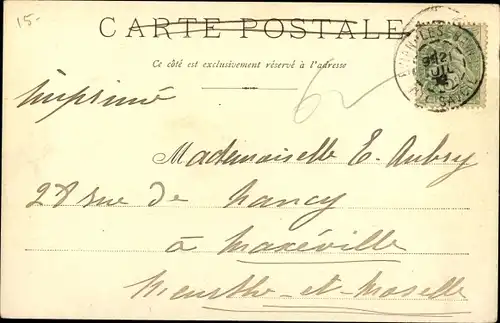 15-
CARTE POSTALE
Ce côté est exclusivement réservé à l'adresse
Imprimé
Mademoiselle E. Aubry
28 rue de Nancy
à Maxéville
Meurthe-et-Moselle